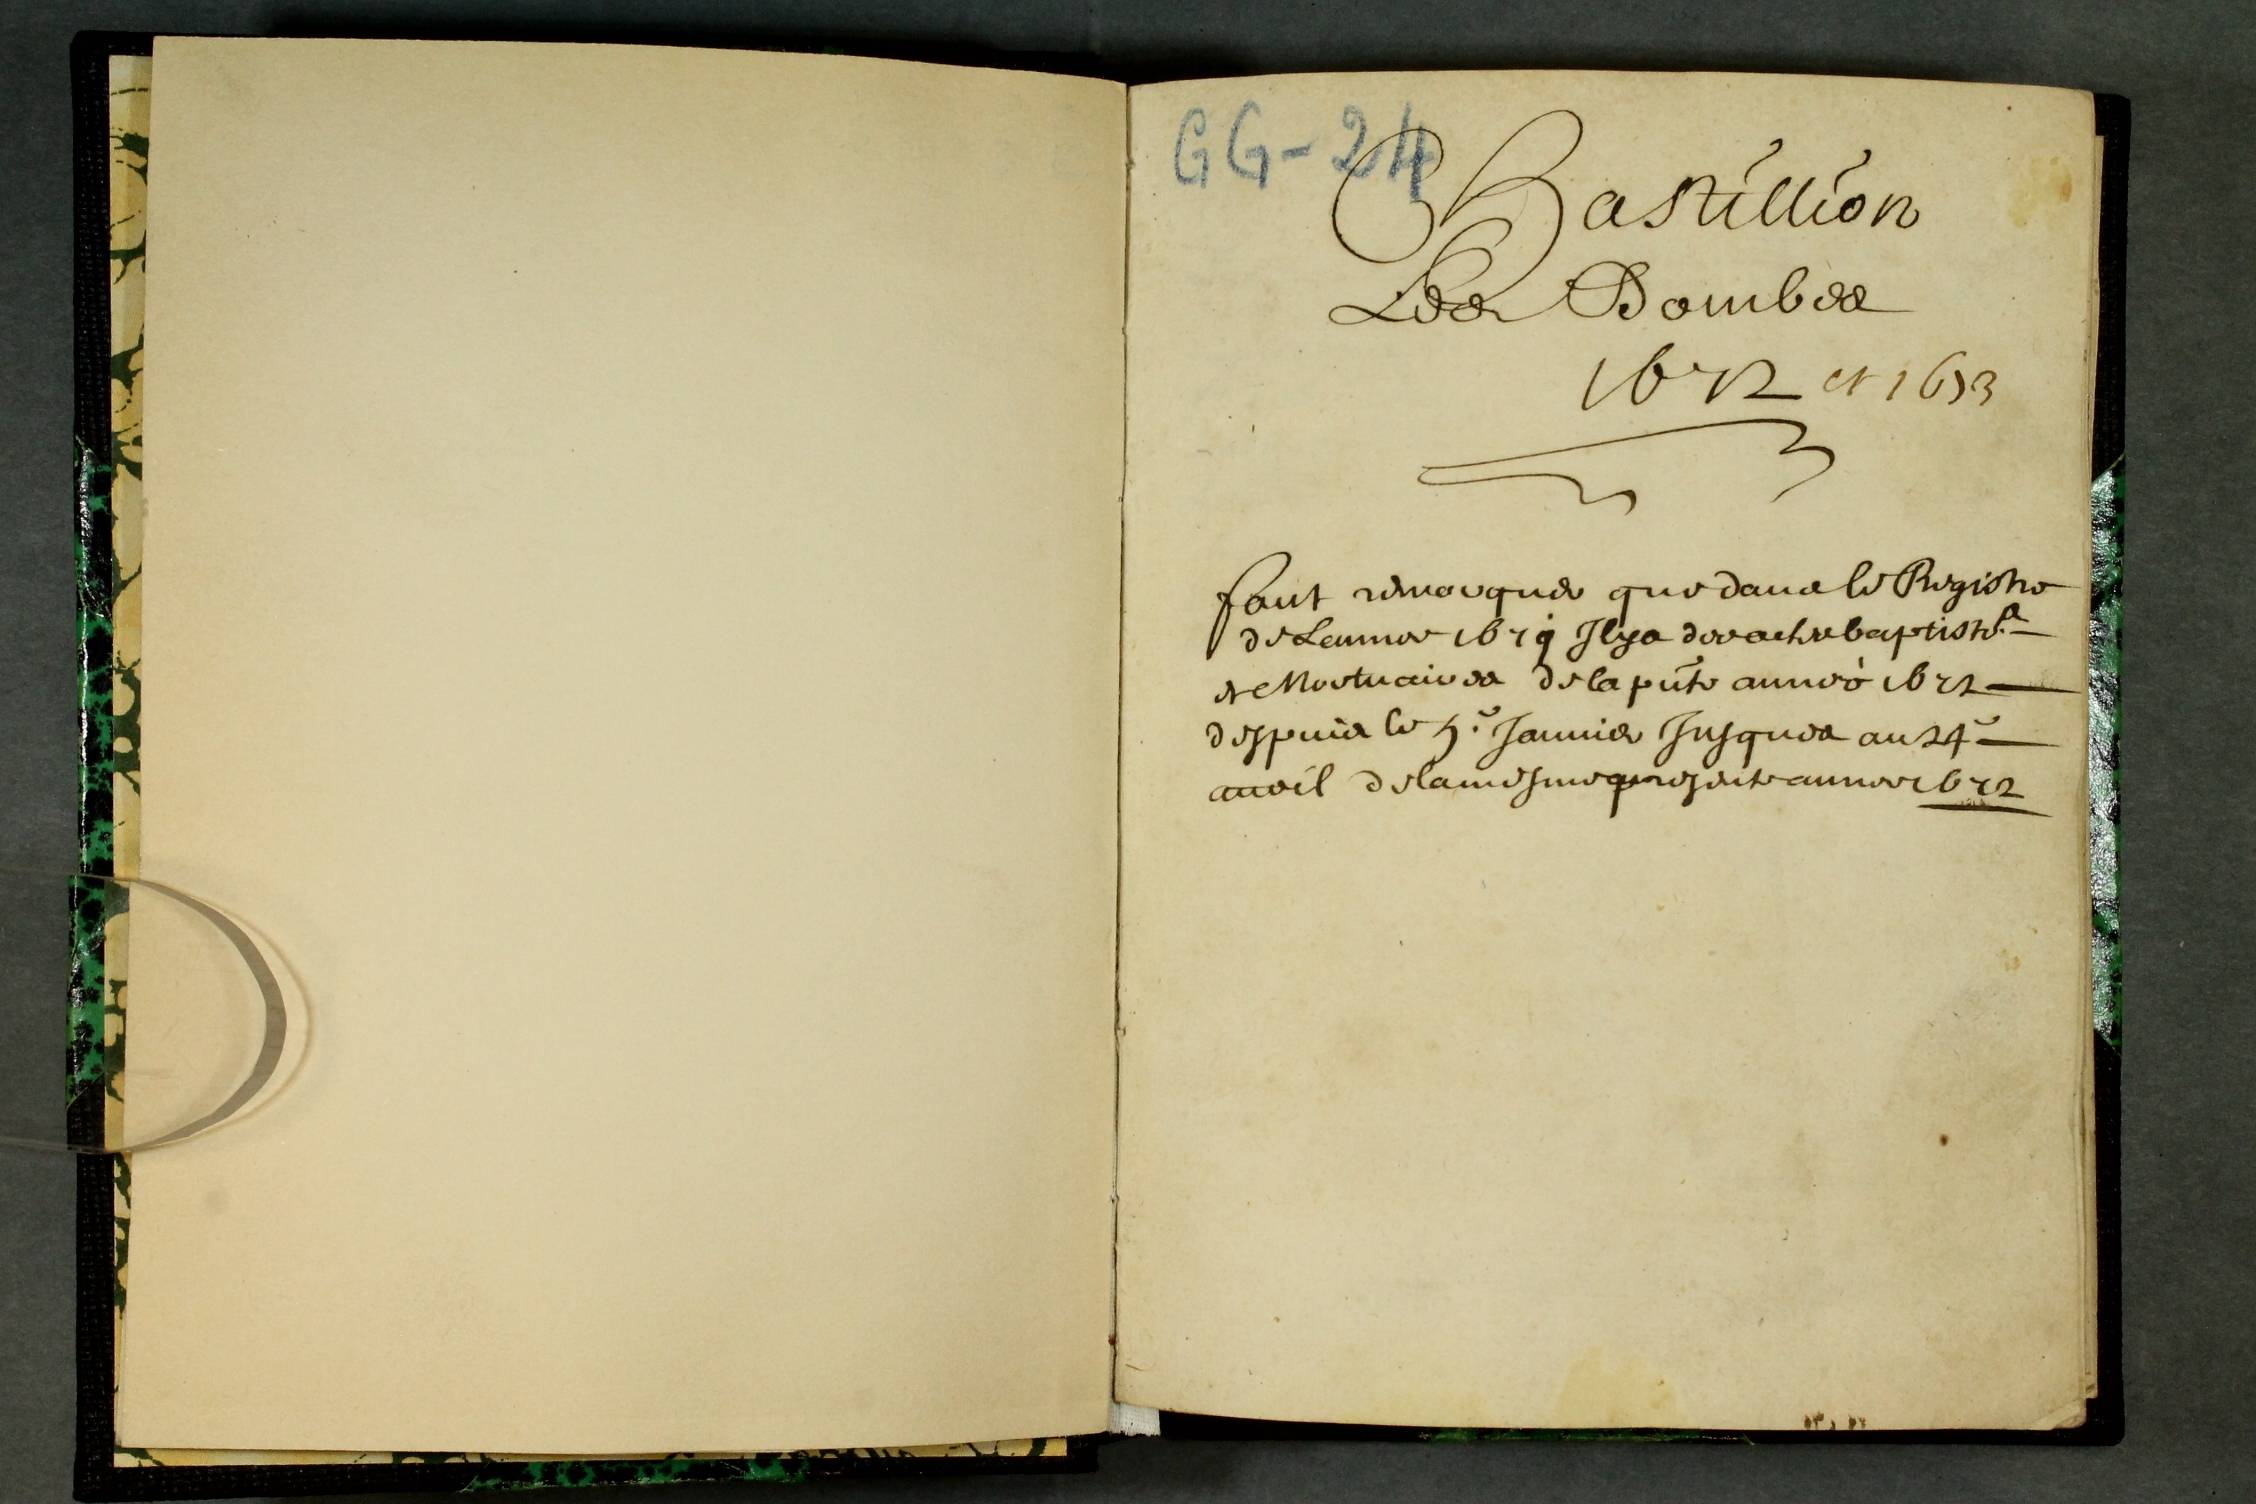 GG-24
Chastillion
Les Dombes
1672 et 1673
faut remarquer que dans le Registre
de Lannee 1679 Ilya des actes baptistres
et Mortuaires de la pñte anneé 1672
despuis le 5e Januier Jusques au 24e
auril de la mesme presente annee 1672